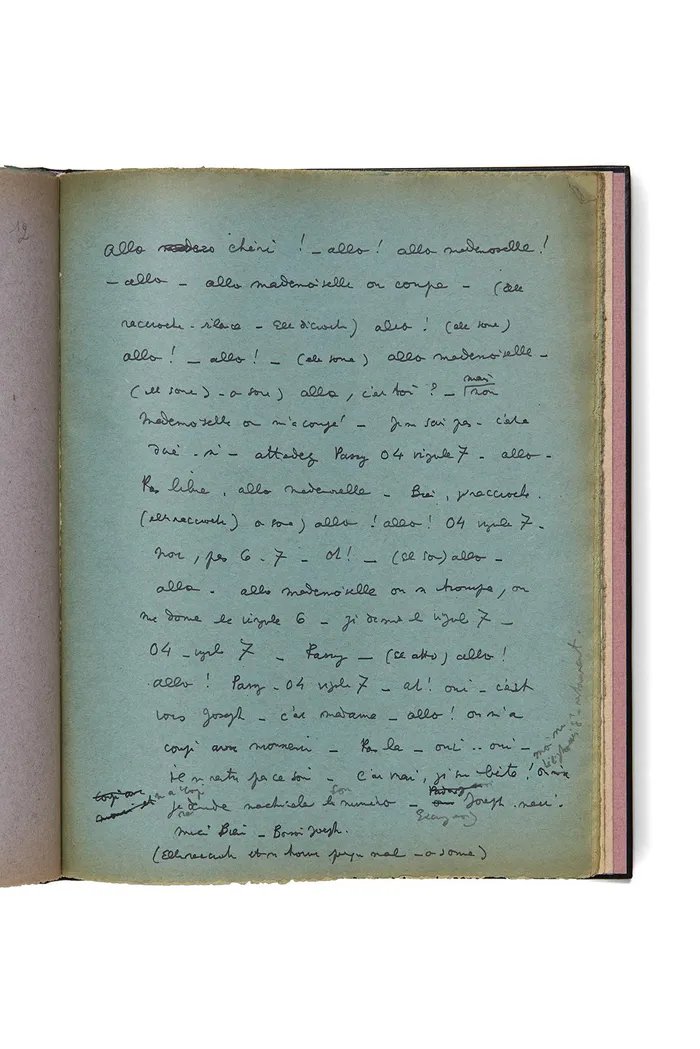 12
allo chéri ! – allo ! allo mademoiselle !
– allo – allo mademoiselle on coupe – (elle
raccroche – silence – Elle décroche) allo ! (elle sonne)
allo ! – allo ! – (elle sonne) allo mademoiselle –
(elle sonne) – on sonne) allo, c'est toi ? – mais non
Mademoiselle on m'a coupé – Je ne sais pas – c'est à
dire – si – attendez Passy 04 virgule 7 – allo –
Pas libre, allo mademoiselle – Bien, je raccroche.
(elle raccroche) on sonne) allo ! allo ! 04 virgule 7 –
non, pas 6 – 7 – (elle sonne) allo –
allo – allo mademoiselle on se trompe, on
me donne le virgule 6 – je demande le virgule 7 –
04 – virgule 7 – Passy – (Elle attend) allo !
allo ! Passy – 04 virgule 7 – ah ! oui – c'est
vous Joseph – c'est madame – allo ! on m'a
coupé avec monsieur – Pas là – oui .. oui –
Il ne rentre pas ce soir – C'est vrai, je suis bête !
je demande machinalement son numéro – Joseph – merci.
merci Bien – Bonsoir Joseph.
(Elle raccroche et se trouve presque mal – on sonne)